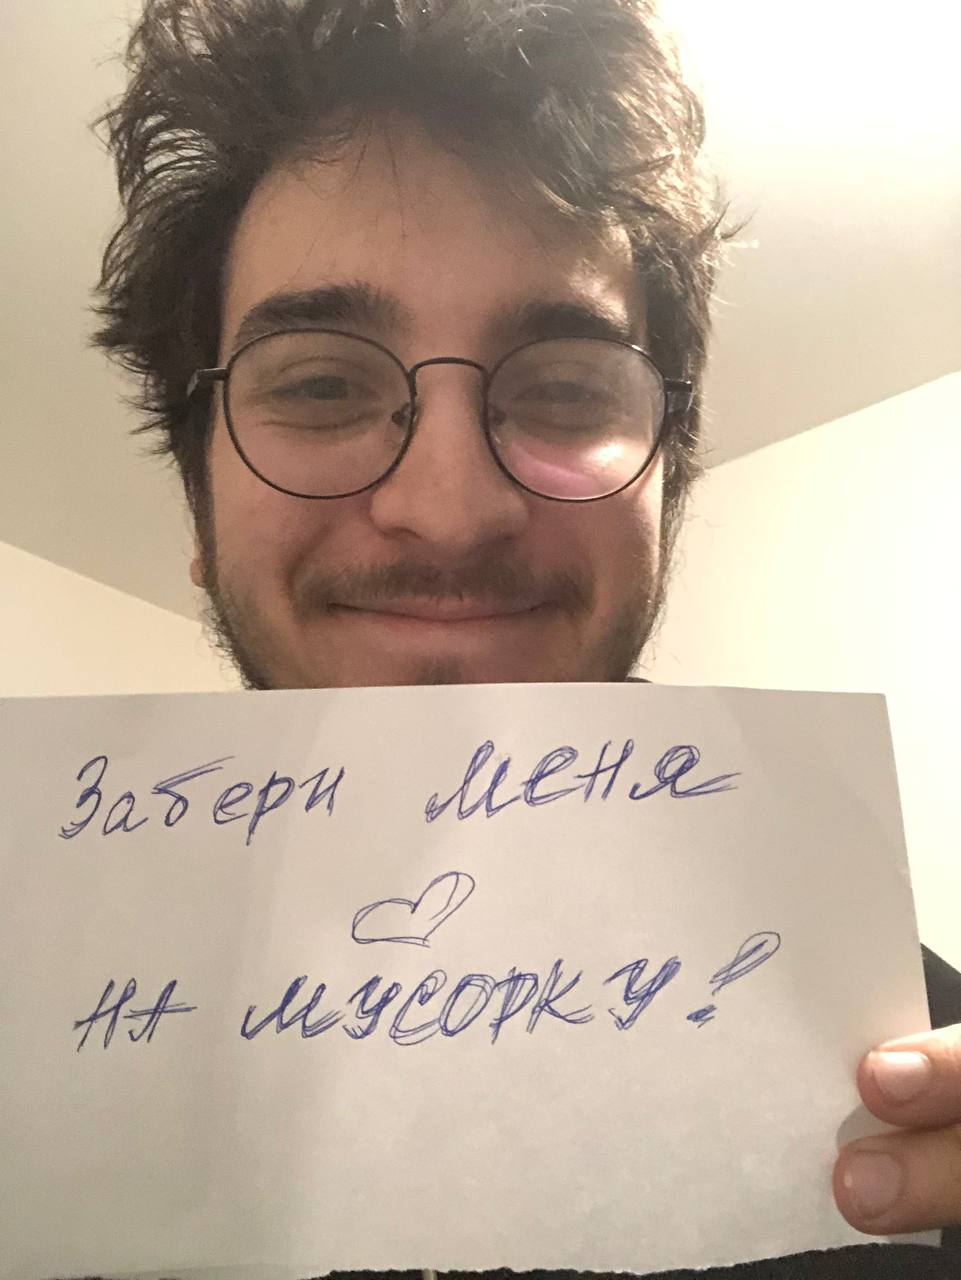 Забери меня
на мусорку!